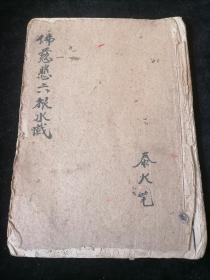 佛慈悲六根水懺
秦大笔